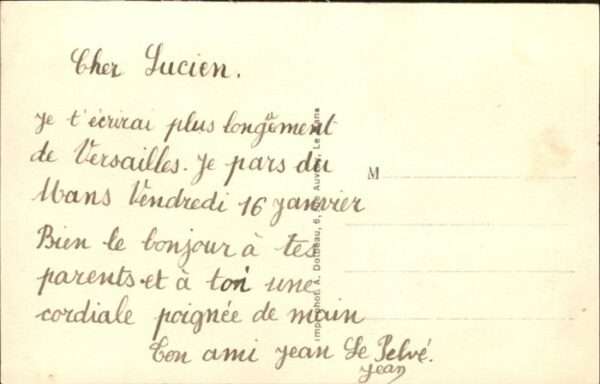 Cher Lucien.
Je t'écrirai plus longuement
de Versailles. Je pars du
Mans Vendredi 16 janvier
Bien le bonjour à tes
parents et à toi une
cordiale poignée de main
Ton ami Jean Le Pelvé.
Jean
M
Imp. phot. A. Dolbeau, 6, Auv Le Mans